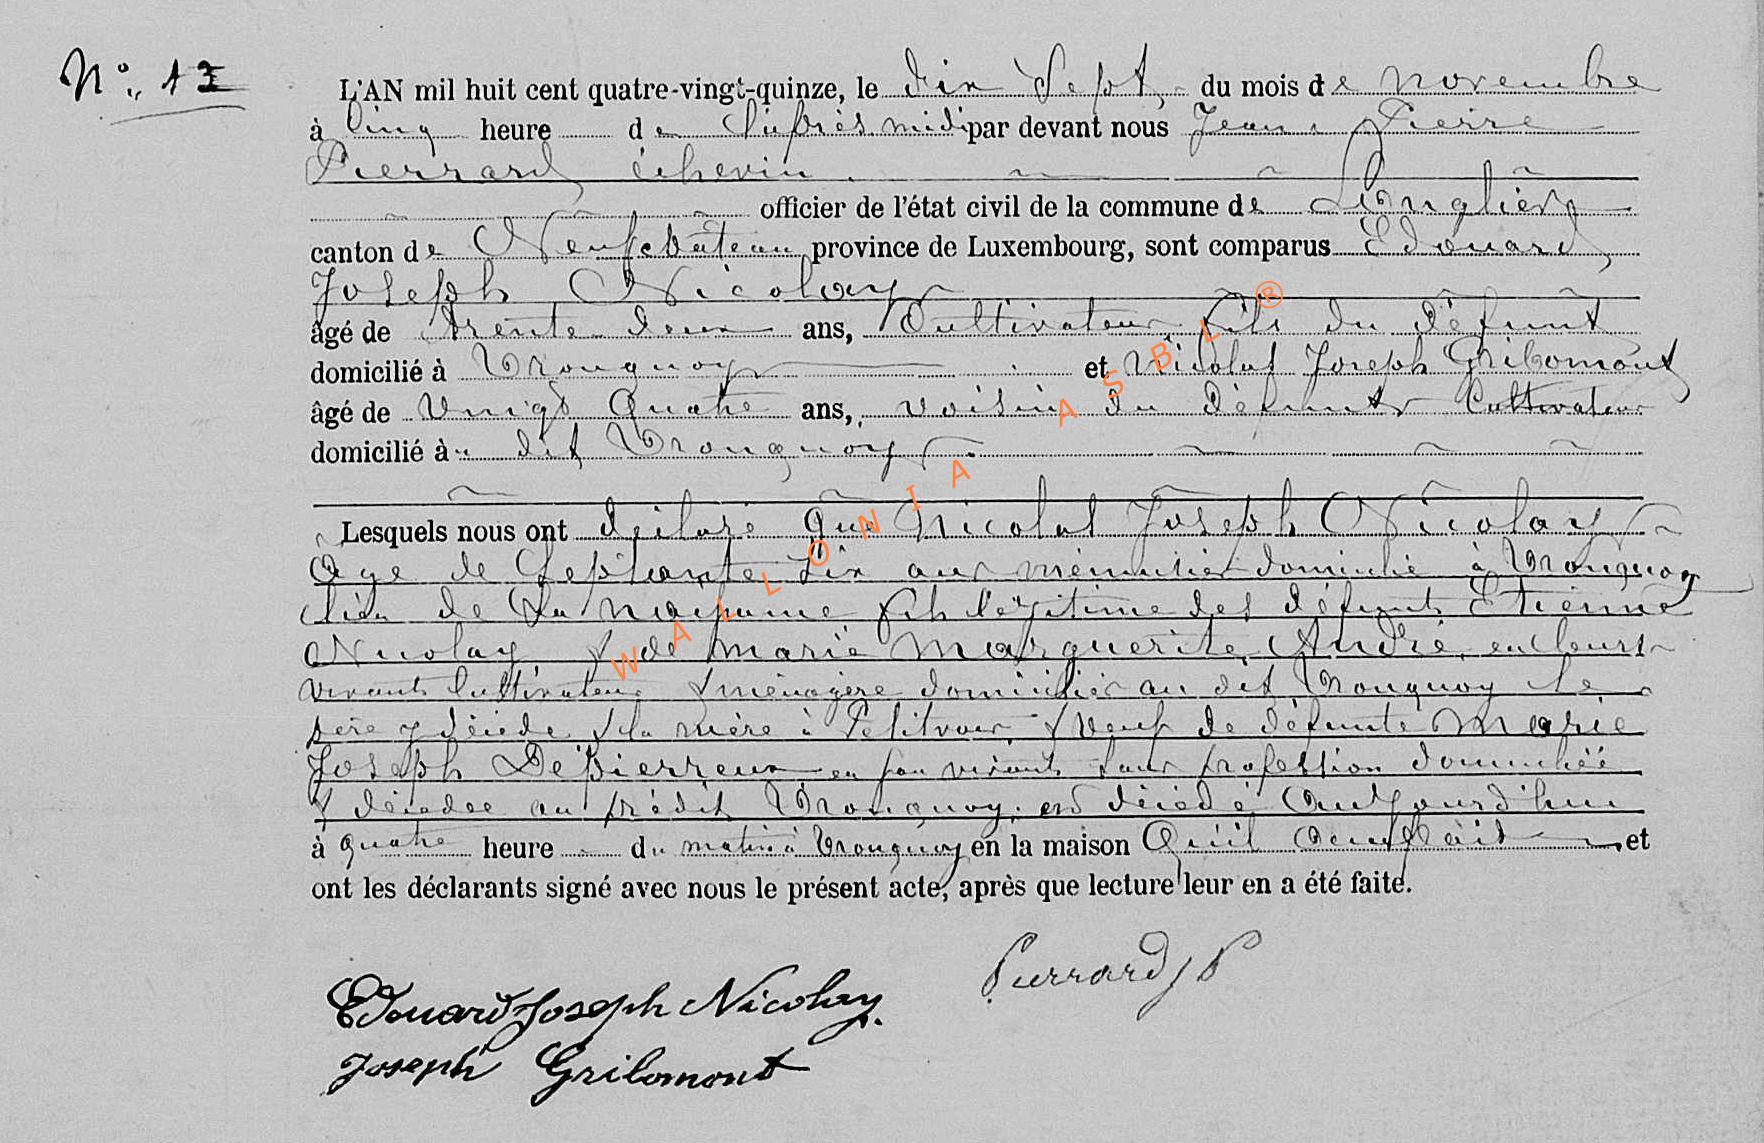 N° 17
L'AN mil huit cent quatre-vingt-quinze, le dix Sept, du mois de novembre
à Cinq heure de l'après midi par devant nous Jean Pierre
Pierrard échevin
officier de l'état civil de la commune de Longlier
canton de Neufchâteau province de Luxembourg, sont comparus Edouard
Joseph Nicolay
âgé de trente deux ans, Cultivateur fils du défunt
domicilié à Tronquoy et Nicolas Joseph Gribomont
âgé de Vingt Quatre ans, voisin du défunt Cultivateur
domicilié au dit Tronquoy
Lesquels nous ont déclaré que Nicolas Joseph Nicolay
age de Septante dix ans menuisier domicilié à Tronquoy
lieu de Sa naissance fils légitime des défunts Etienne
Nicolay & de marie Marguerite André, en leurs
vivants Cultivateur & ménagère domiciliés au dit Tronquoy le
père y décédé & la mère à Petitvoir & Veuf de défunte Marie
Joseph Depierreux en son vivant sans profession domiciliée
& décédée au prédit Tronquoy, est décédé aujourd'hui
à quatre heure du matin à Tronquoy en la maison Qu'il occupait et
ont les déclarants signé avec nous le présent acte, après que lecture leur en a été faite.
Pierrard J P
Edouard Joseph Nicolay.
Joseph Gribomont
WALLONIA ASBL ®